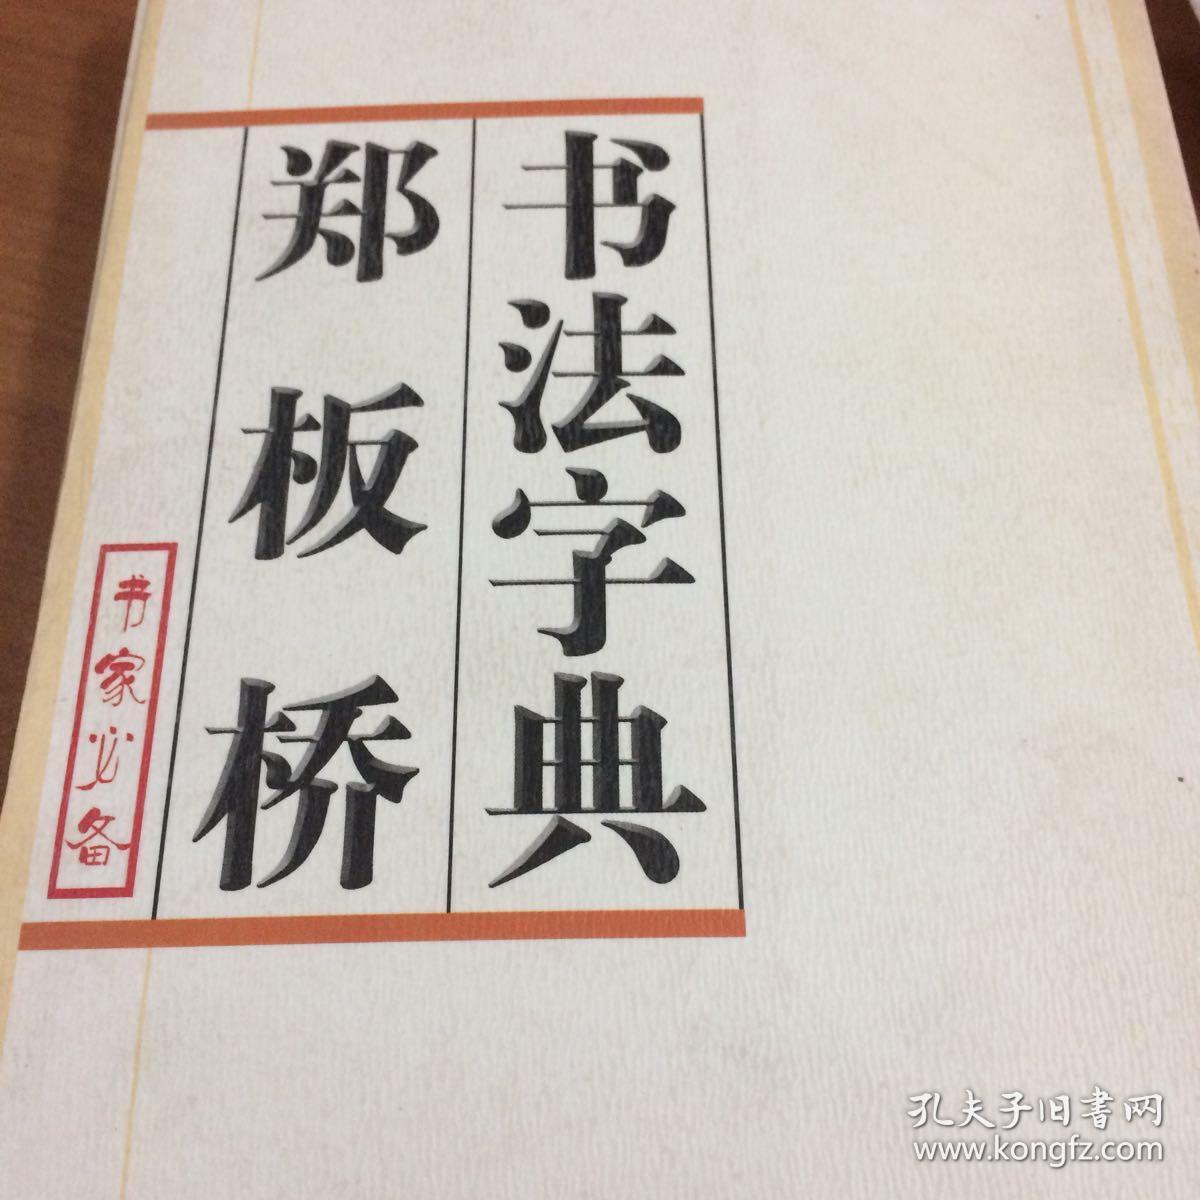 郑板桥
书法字典
书家必备
孔夫子旧書网
www.kongfz.com